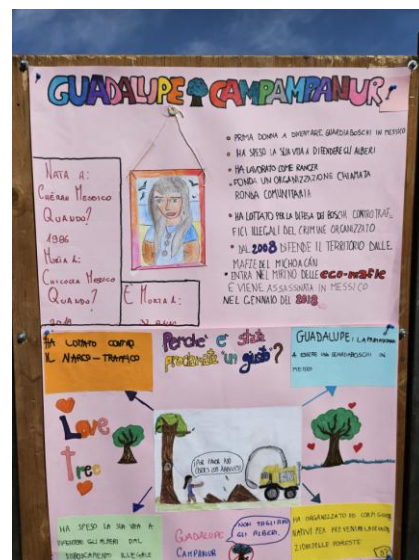 GUADALUPE CAMPAMPANUR!
NATA A:
CHÉRAN MESSICO
QUANDO?
1986
MORTA A:
MESSICO
QUANDO?
E MORTA A:
• PRIMA DONNA A DIVENTARE GUARDIABOSCHI IN MESSICO
• HA SPESO LA SUA VITA A DIFENDERE GLI ALBERI
• HA LAVORATO COME RANGER
FONDA UN ORGANIZZAZIONE CHIAMATA
RONDA COMUNITARIA
• HA LOTTATO PER LA DIFESA DEI BOSCHI, CONTRO TRAF
FICI ILLEGALI DEL CRIMINE ORGANIZZATO
• DAL 2008 DIFENDE IL TERRITORIO DALLE
MAFIE DEL MICHOACÁN
• ENTRA NEL MIRINO DELLE eco-mafie
E VIENE ASSASSINATA IN MESSICO
NEL GENNAIO DEL 2018
HA LOTTATO CONTRO
IL NARCO-TRAFFICO
Perché e' stata
proclamata un giusto?
GUADALUPE: LA PRIMA
A ESSERE UNA GUARDABOSCHI IN
Love
Tree
¡POR FAVOR NO
HA SPESO LA SUA VITA A
DIFENDERE GLI ALBERI DAL
DISBOSCAMENTO ILLEGALE
GUADALUPE
CAMPANUR
NON TAGLIAMO
GLI ALBERI.
HA ORGANIZZATO DEI
NATIVI PER PREVENIRE